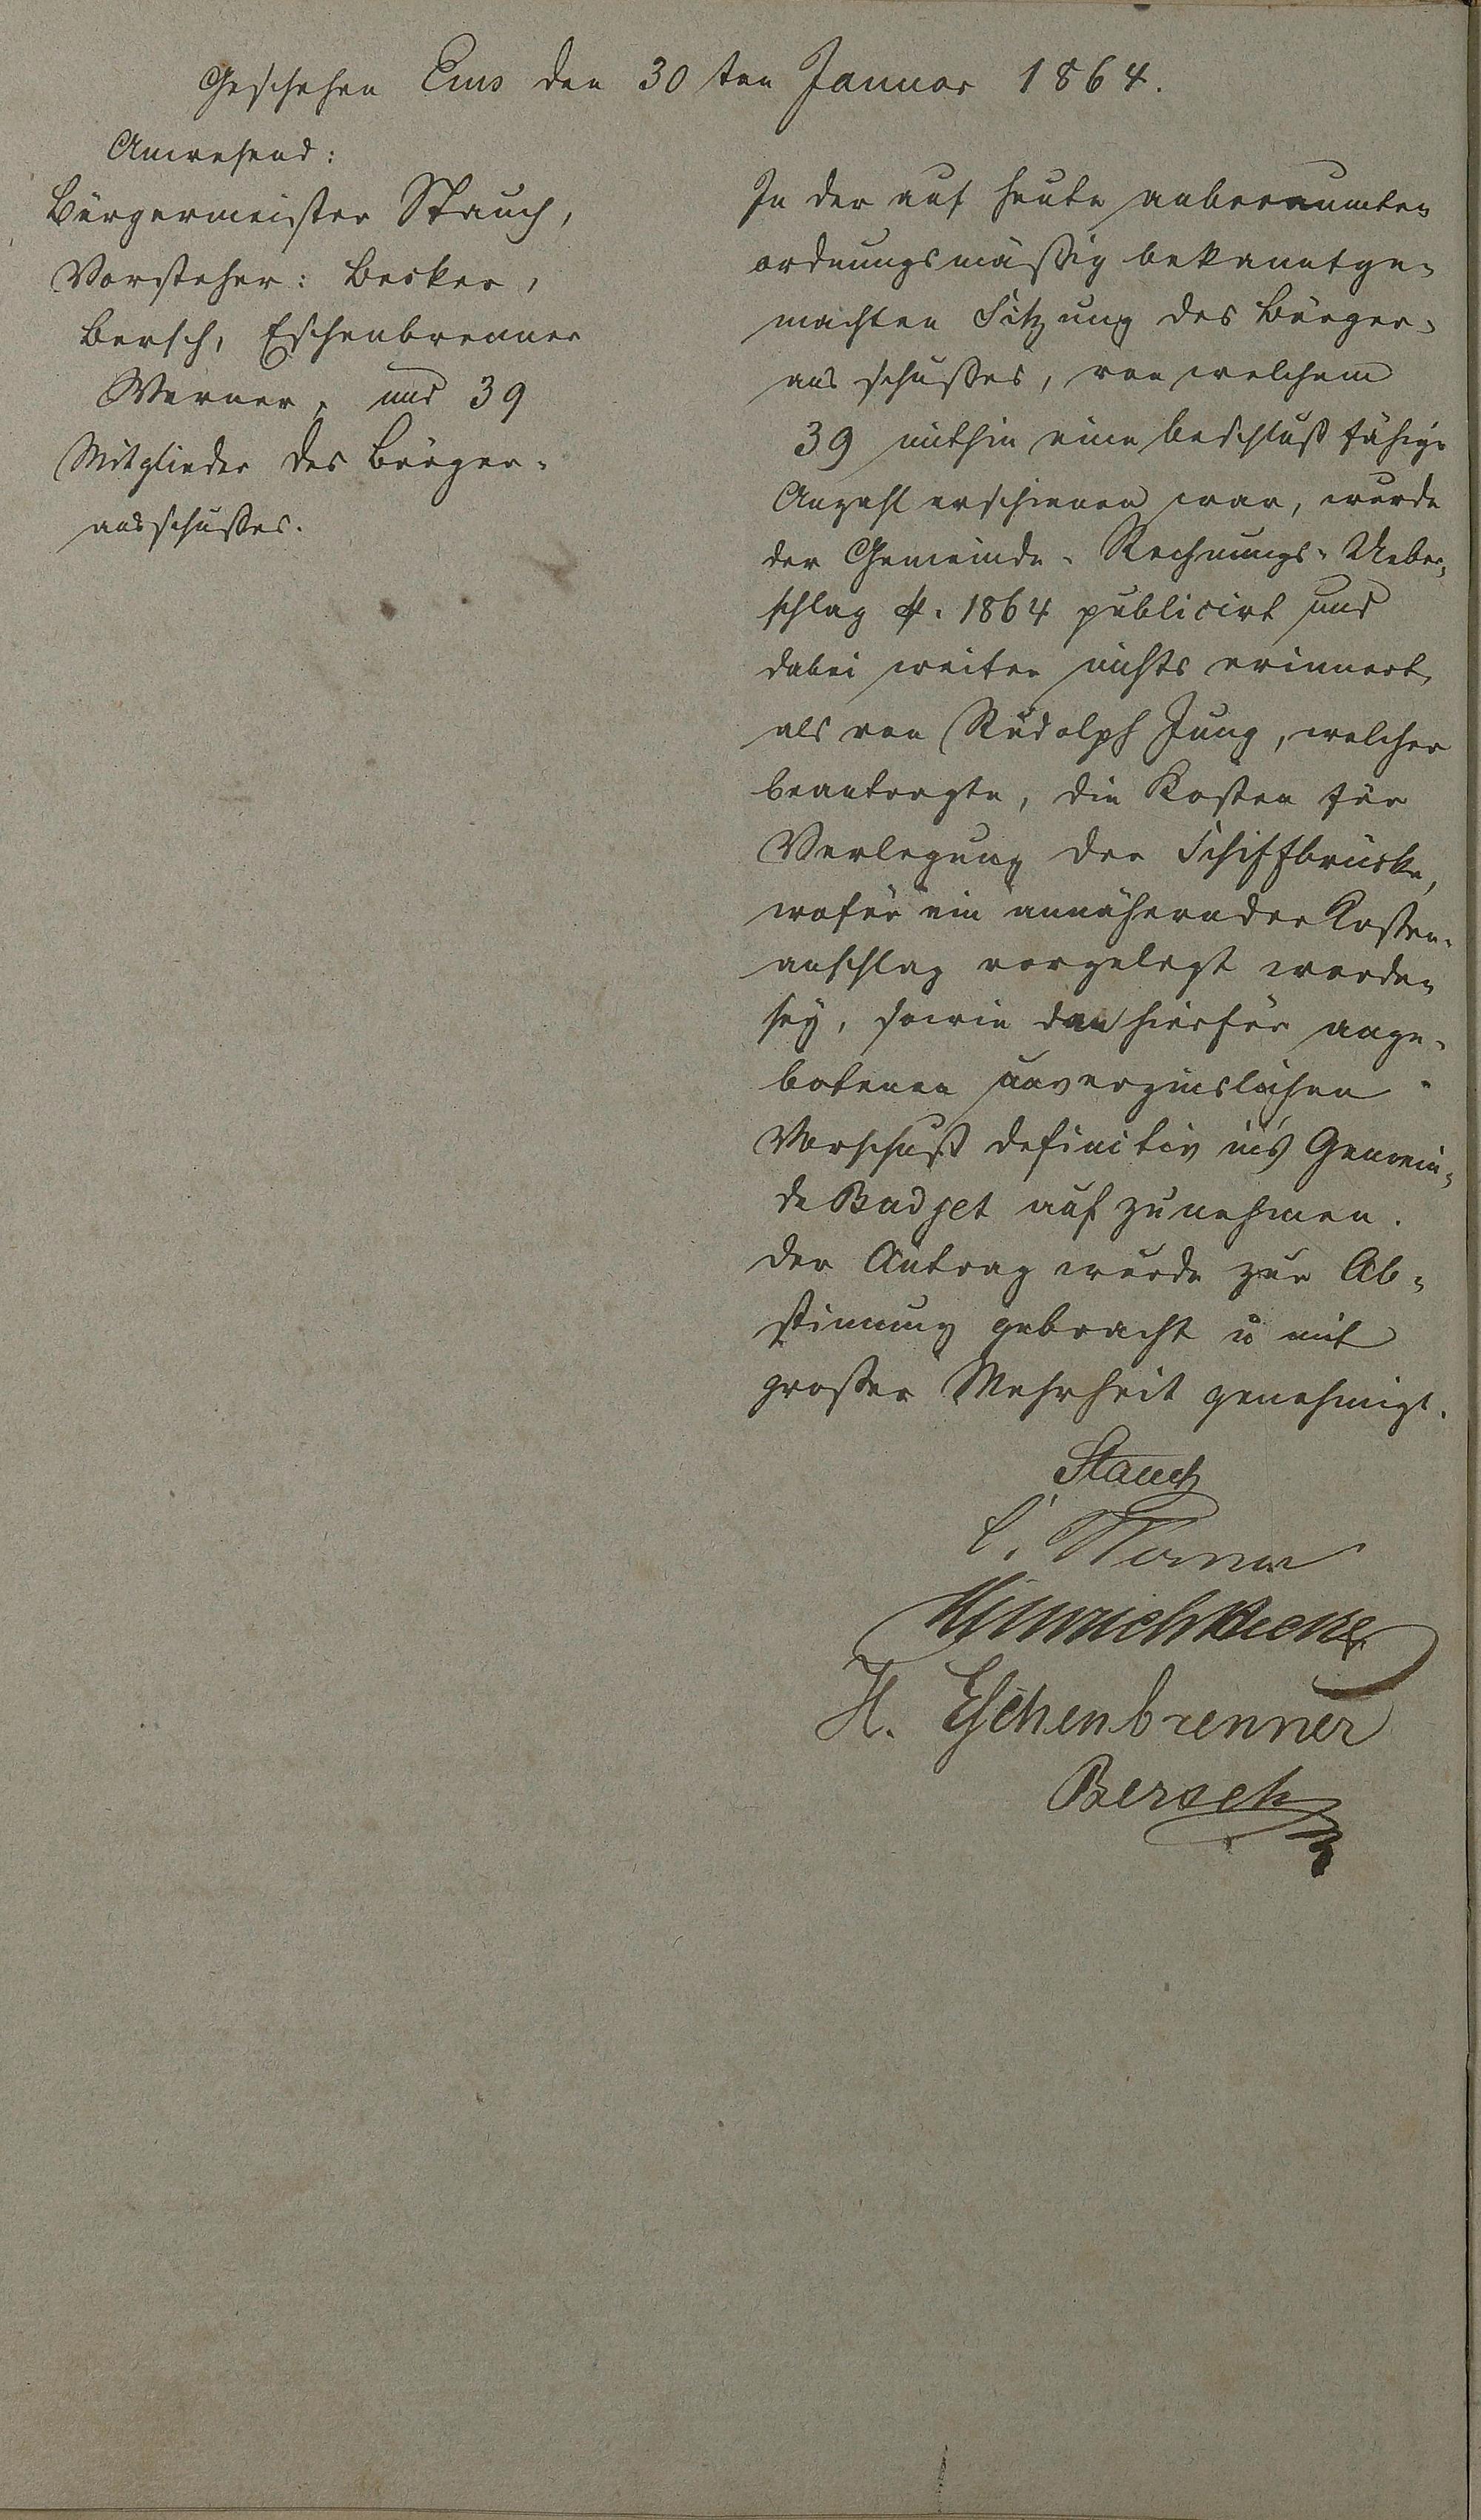 Geschehen Ems den 30ten Januar 1864.
Anwesend:
Bürgermeister Stauch,
Vorsteher: Becker,
Bersch, Eschenbrenner
Werner, und 39
Mitglieder des Bürger-
ausschußes.
In der auf heute anberaumten
ordnungsmäßig bekanntge-
machten Sitzung des Bürger-
ausschußes, von welchem
39 mithin eine beschlußfähige
Anzahl erschienen war, wurde
der Gemeinde-Rechnungs-Ueber-
schlag p. 1864 publicirt und
dabei weiter nichts erinnert,
als von Rudolph Jung, welcher
beantragte, die Kosten für
Verlegung der Schiffbrücke,
wofür ein annähernder Kosten-
anschlag vorgelegt worden
sey, sowie den hierfür ange-
botenen unverzinslichen
Vorschuß definitiv in's Gemein-
de Budget aufzunehmen.
Der Antrag wurde zur Ab-
stimmung gebracht u mit
großer Mehrheit genehmigt.
Stauch
C. Werner
Heinrich Becker
H. Eschenbrenner
Bersch